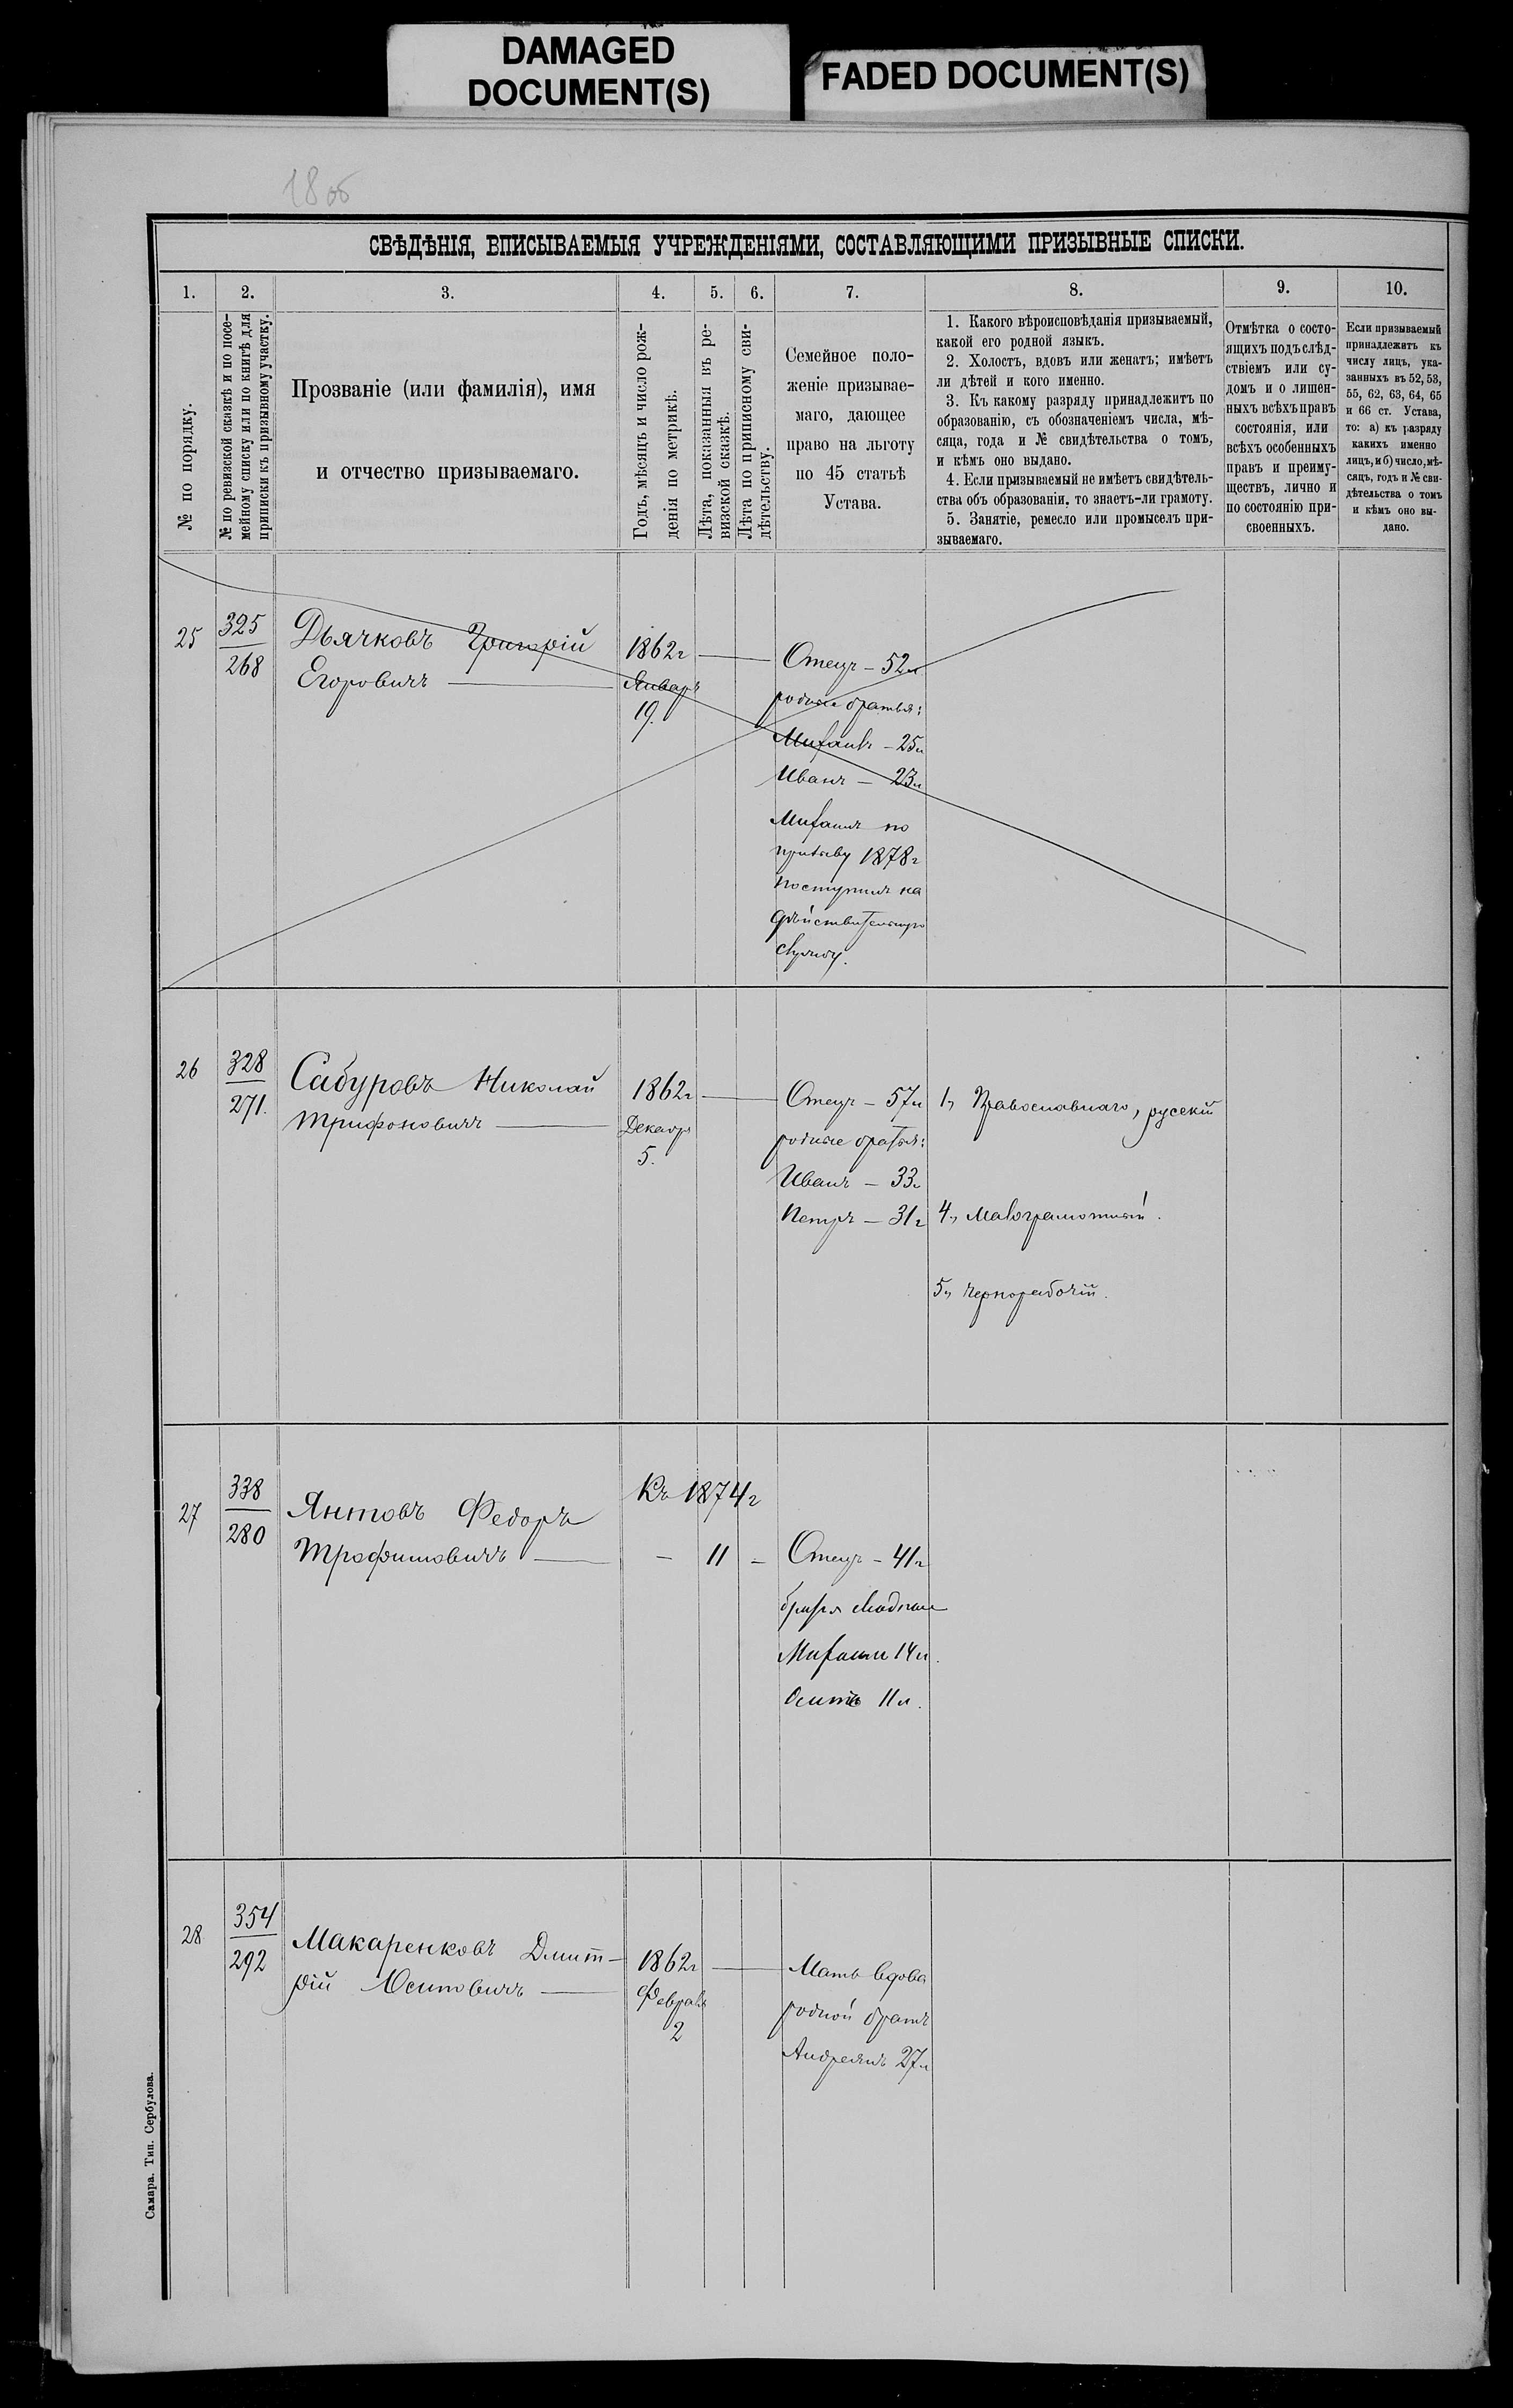 DAMAGED
DOCUMENT(S)
FADED DOCUMENT(S)
18об
СВѢДѢНІЯ, ВПИСЫВАЕМЫЯ УЧРЕЖДЕНІЯМИ, СОСТАВЛЯЮЩИМИ ПРИЗЫВНЫЕ СПИСКИ.
1.
2.
3.
4.
5.
6.
7.
8.
9.
10.
№ по порядку.
№ по ревизской сказкѣ и по посе-
мейному списку или по книгѣ для
приписки къ призывному участку.
Прозваніе (или фамилія), имя
и отчество призываемаго.
Годъ, мѣсяцъ и число рож-
денія по метрикѣ.
Лѣта, показанныя въ ре-
визской сказкѣ.
Лѣта по приписному сви-
дѣтельству.
Семейное поло-
женіе призывае-
маго, дающее
право на льготу
по 45 статьѣ
Устава.
1. Какого вѣроисповѣданія призываемый,
какой его родной языкъ.
2. Холостъ, вдовъ или женатъ; имѣетъ
ли дѣтей и кого именно.
3. Къ какому разряду принадлежитъ по
образованію, съ обозначеніемъ числа, мѣ-
сяца, года и № свидѣтельства о томъ,
и кѣмъ оно выдано.
4. Если призываемый не имѣетъ свидѣтель-
ства объ образованіи, то знаетъ-ли грамоту.
5. Занятіе, ремесло или промыселъ при-
зываемаго.
Отмѣтка о состо-
ящихъ подъ слѣд-
ствіемъ или су-
домъ и о лишен-
ныхъ всѣхъ правъ
состоянія, или
всѣхъ особенныхъ
правъ и преиму-
ществъ, лично и
по состоянію при-
своенныхъ.
Если призываемый
принадлежитъ къ
числу лицъ, ука-
занныхъ въ 52, 53,
55, 62, 63, 64, 65
и 66 ст. Устава,
то: а) къ разряду
какихъ именно
лицъ, и б) число, мѣ-
сяцъ, годъ и № сви-
дѣтельства о томъ
и кѣмъ оно вы-
дано.
25
325
268
Дьячковъ Григорій
Егоровичъ —
1862г
Январь
19.
Отецъ – 52л
родные братья:
Михаилъ – 25л
Иванъ – 23л
Михаилъ по
призыву 1878г
поступилъ на
дѣйствительную
службу.
26
328
271.
Сабуровъ Николай
Трифоновичъ —
1862г
Декабрь
5.
Отецъ – 57л
родные братья:
Иванъ – 33л
Петръ – 31г
1, Православнаго, русскій
4, Малограмотный.
5, Чернорабочій.
27
338
280
Янтовъ Федоръ
Трофимовичъ —
Къ 1874г
– 11 –
Отецъ – 41г
братья
Михаилъ 14л.
Осипъ 11л.
28
354
292
Макаренковъ Дмит-
рій Осиповичъ —
1862г
Февраль
2
Мать вдова
родной братъ
Андреянъ 27л
Самара. Тип. Сербулова.